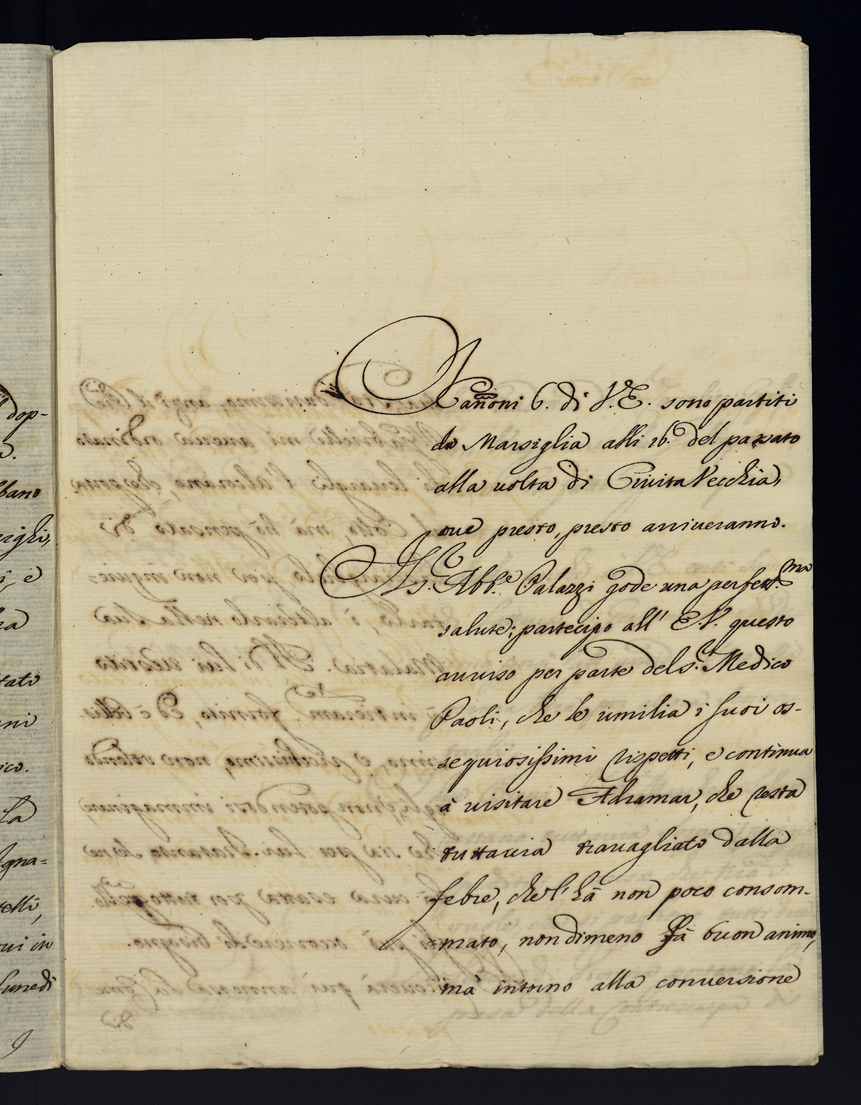 I Cañoni 6. di V.E. sono partiti
da Marsiglia alli 26. del passato
alla volta di Civita Vecchia,
ove presto, presto arriveranno.
Il S.r Abb.e Palazzi gode una perfett.ma
salute; partecipo all' E.V. questo
avviso per parte del S.r Medico
Paoli, che le umilia i suoi os-
sequiosissimi rispetti, e continua
à visitare Adramar, che resta
tuttavia travagliato dalla
febre, che l' hà non poco consom-
mato, nondimeno hà buon animo,
mà intorno alla conversione
dop-
bano
e
tato
ni
ico.
La
gna-
telli,
ui in
Lunedì